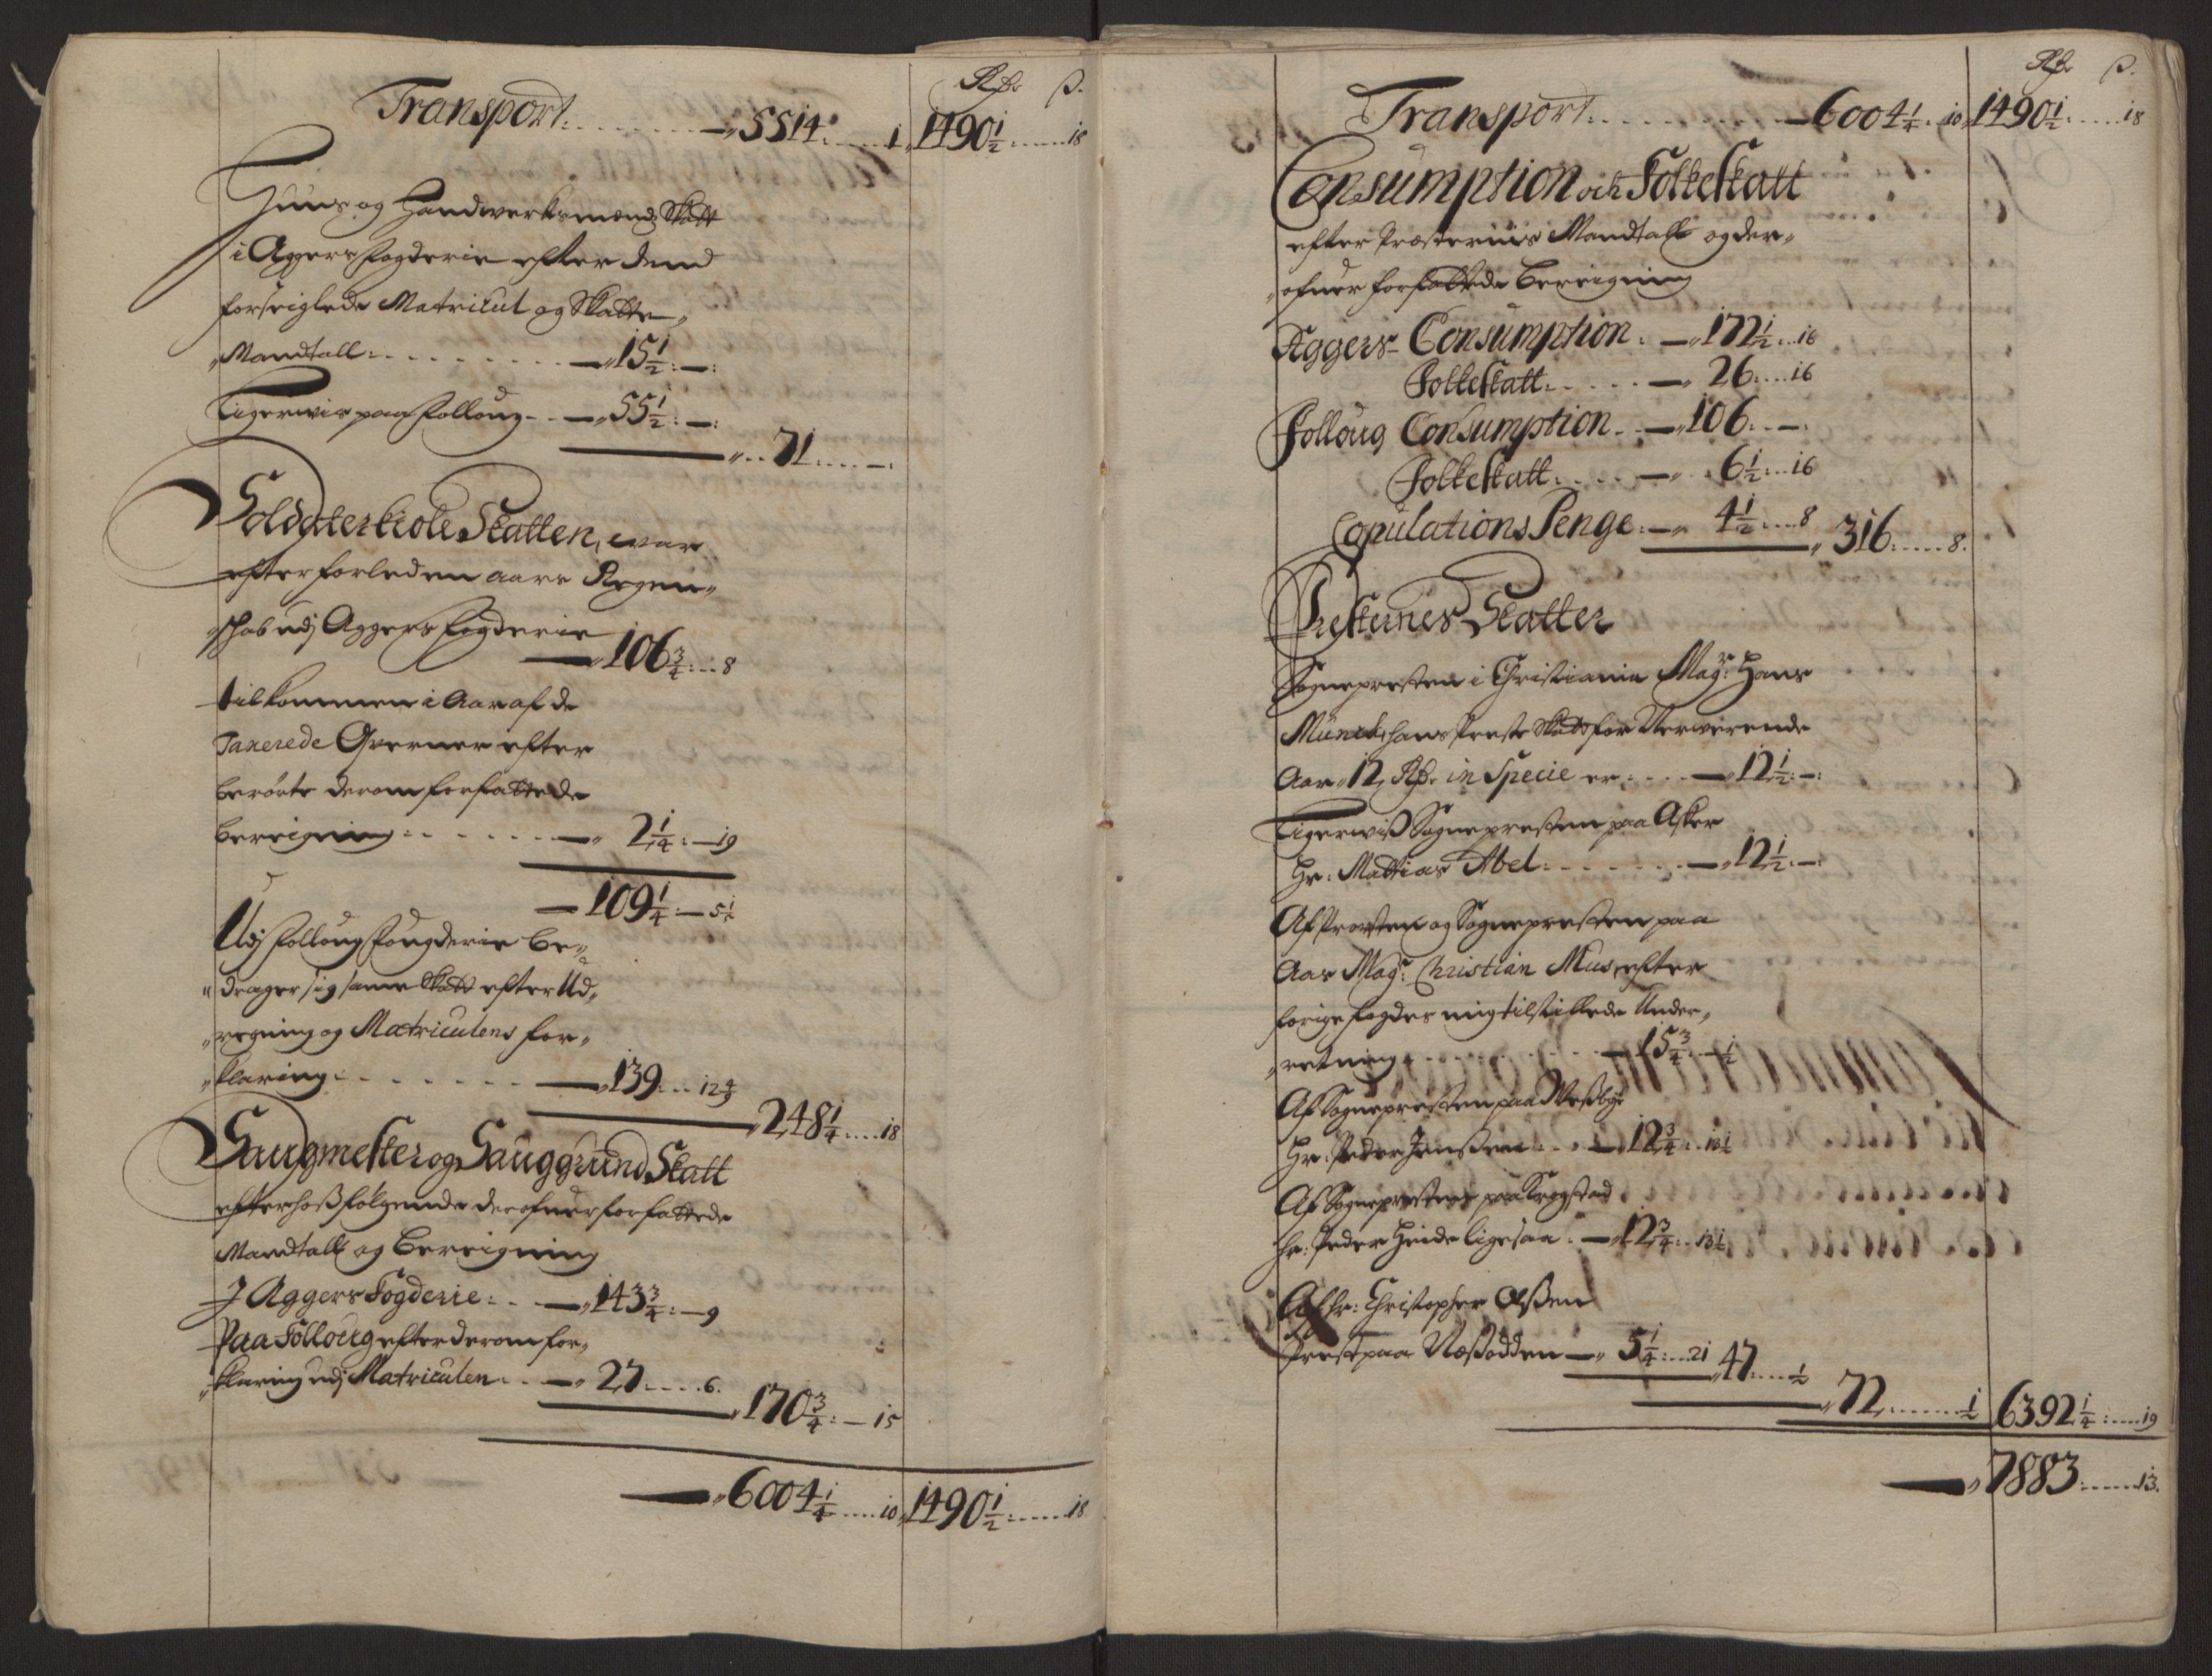 Rdr ß.
Transport:........—„5514:......1„ 1490½:......18
Huus og Handwerksmænds Skatt
i Aggers fogderie efter dend
forseiglede Matricul og Skatte„
„Mandtall:.........—„15½:—:
Ligerwis paa Folloug - - —„55½:—:
„..71:....—:
Soldaterkiole Skatten, war
efter forleden aars Regen„
„schab udj Aggers fogderie
—„106¾:...8
tilkommen i Aar af de
Taxerede Qverner efter
berørte derom forfattede
bereigning:......—„ 2¼:—19
—109¼:—5½
Udj Follough fougderie be„
„drager sig samme Skatt efter Ud„
„regning og Matriculens for„
„klaring:......—„139:...12½
„248¼:....18
Saugmester og Sauggrund Skatt
efter hosfølgende derofuer forfattede
Mandtall og bereigning
J Aggers Fogderie:..—„143¾:—9
Paa Folloug efter derom for„
„klaring udj Matriculen:..—„27:....6.
„170¾:—15
—„6004¼:....10„ 1490½:......18
Rdr ß.
Transport:..........—6004¼:.10„ 1490½:.....18
Consumption och Folkeskatt
efter Præsternis Mandtall og der„
„ofuer forfattede bereigning
Aggers- Consumption:—„172½:..16
Folkeskatt:.....—„26:...16
Folloug Consumption..—„106:.—.
Folkeskatt:....—„..6½:...16
Copulations Penge:—„ 4½:....8 „316:.....8.
Presternes Skatter
Sognepresten i Christiania Magr: Hans
Munch, hans Preste Skatt for Nerwerende
Aar „12„ Rdr. in Specie er:....—„12½:—:
Ligerwiß Sognepresten paa Asker
Hr: Mattias Abel:........—„12½:—:
Af Prowsten og Sognepresten paa
Aas Magr: Christian Mus, efter
forige fogdes mig tilstillede Under„
„retning:..........—15¾:—½
Af Sognepresten paa Wessbye
Hr: Peder Jenssen:...—„12¾:..13½
Af Sognepresten paa Krogstad
hr: Peder Heide ligesaa:—„12¾:..13½
Af hr: Christopher Olssen
Prest paa Nessodden—„ 5¼:...21 „47:....½
„72:.......½ 6392¼:....19
—„7883:......13.